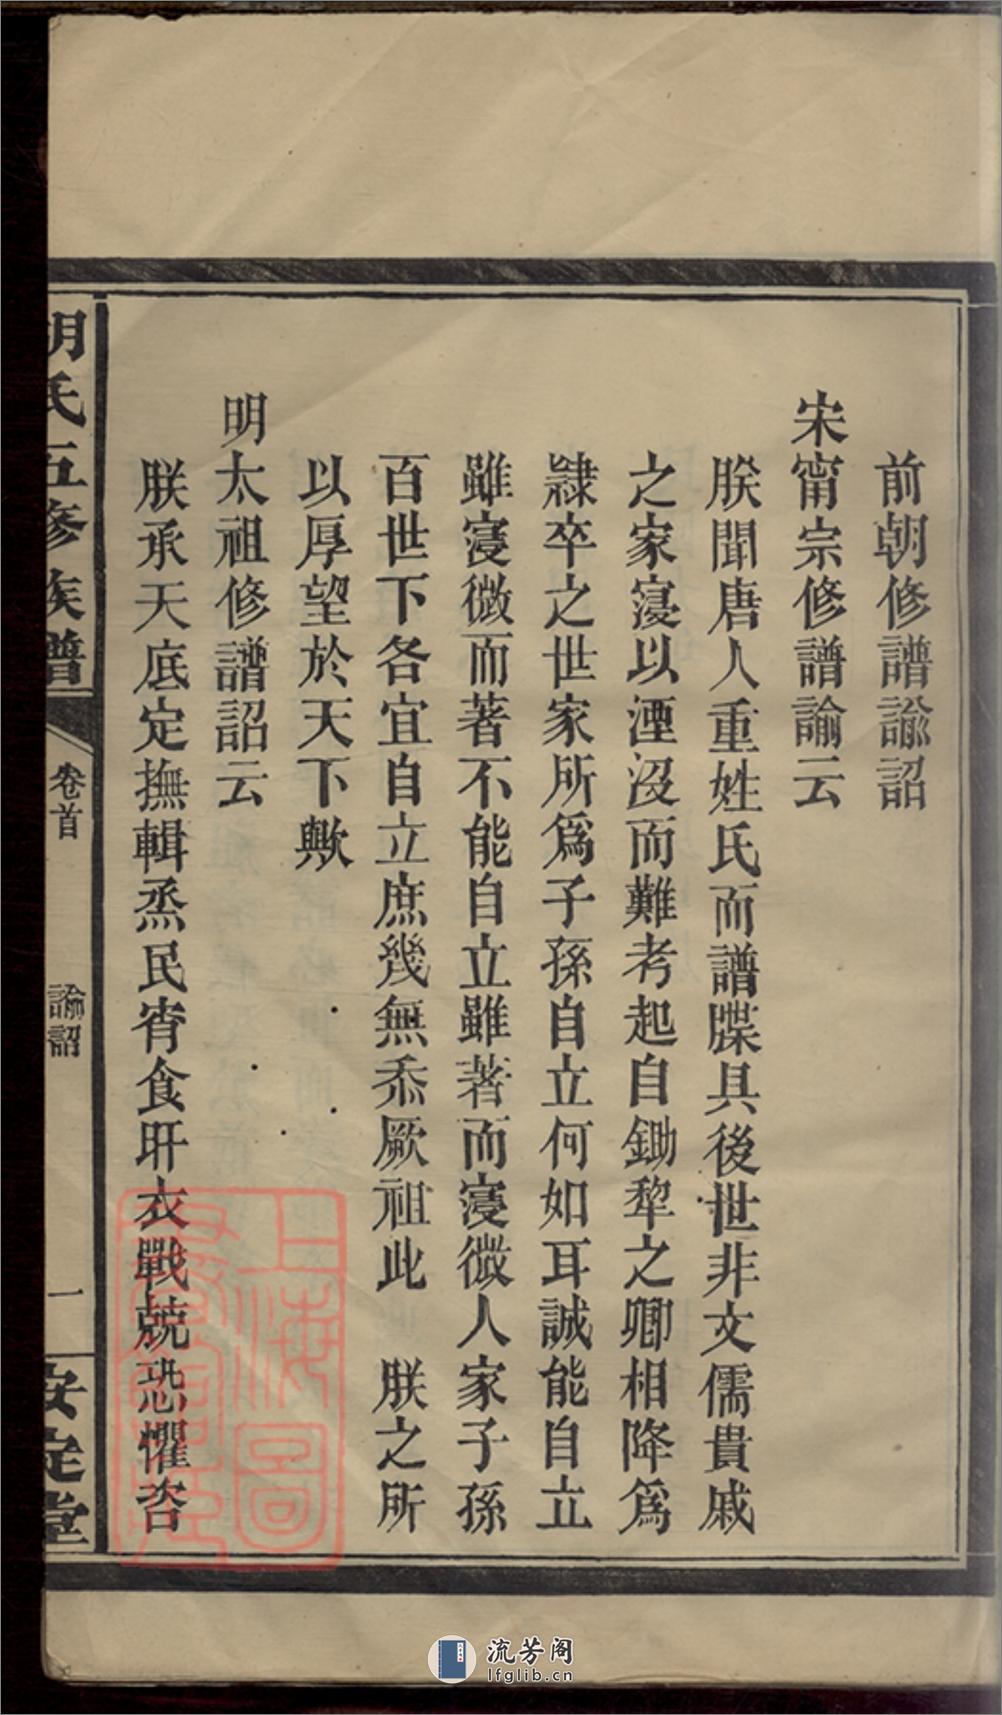 前朝修譜諭詔
宋甯宗修譜諭云
朕聞唐人重姓氏而譜牒具後世非文儒貴戚
之家寖以湮沒而難考起自鋤犂之卿相降爲
隷卒之世家所爲子孫自立何如耳誠能自立
雖寖微而著不能自立雖著而寖微人家子孫
百世下各宜自立庶幾無忝厥祖此 朕之所
以厚望於天下歟
明太祖修譜詔云
朕承天底定撫輯烝民宵食旰衣戰兢恐懼咨
胡氏五修族譜
卷首
諭詔
一
安定堂
上海圖
書館藏
流芳阁
lfglib.cn